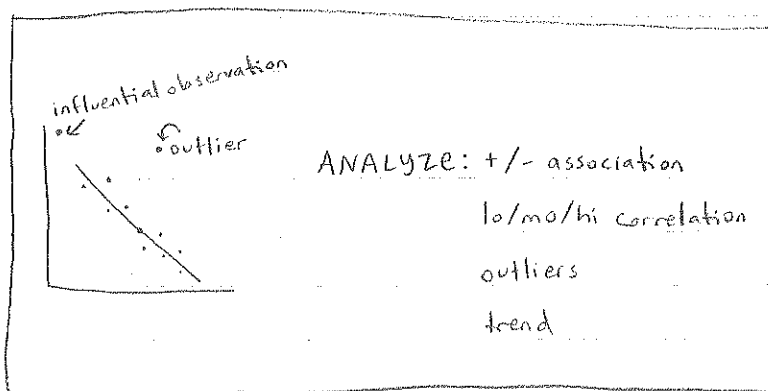 influential observation
outlier
ANALYZE: +/- association
lo/mo/hi correlation
outliers
trend